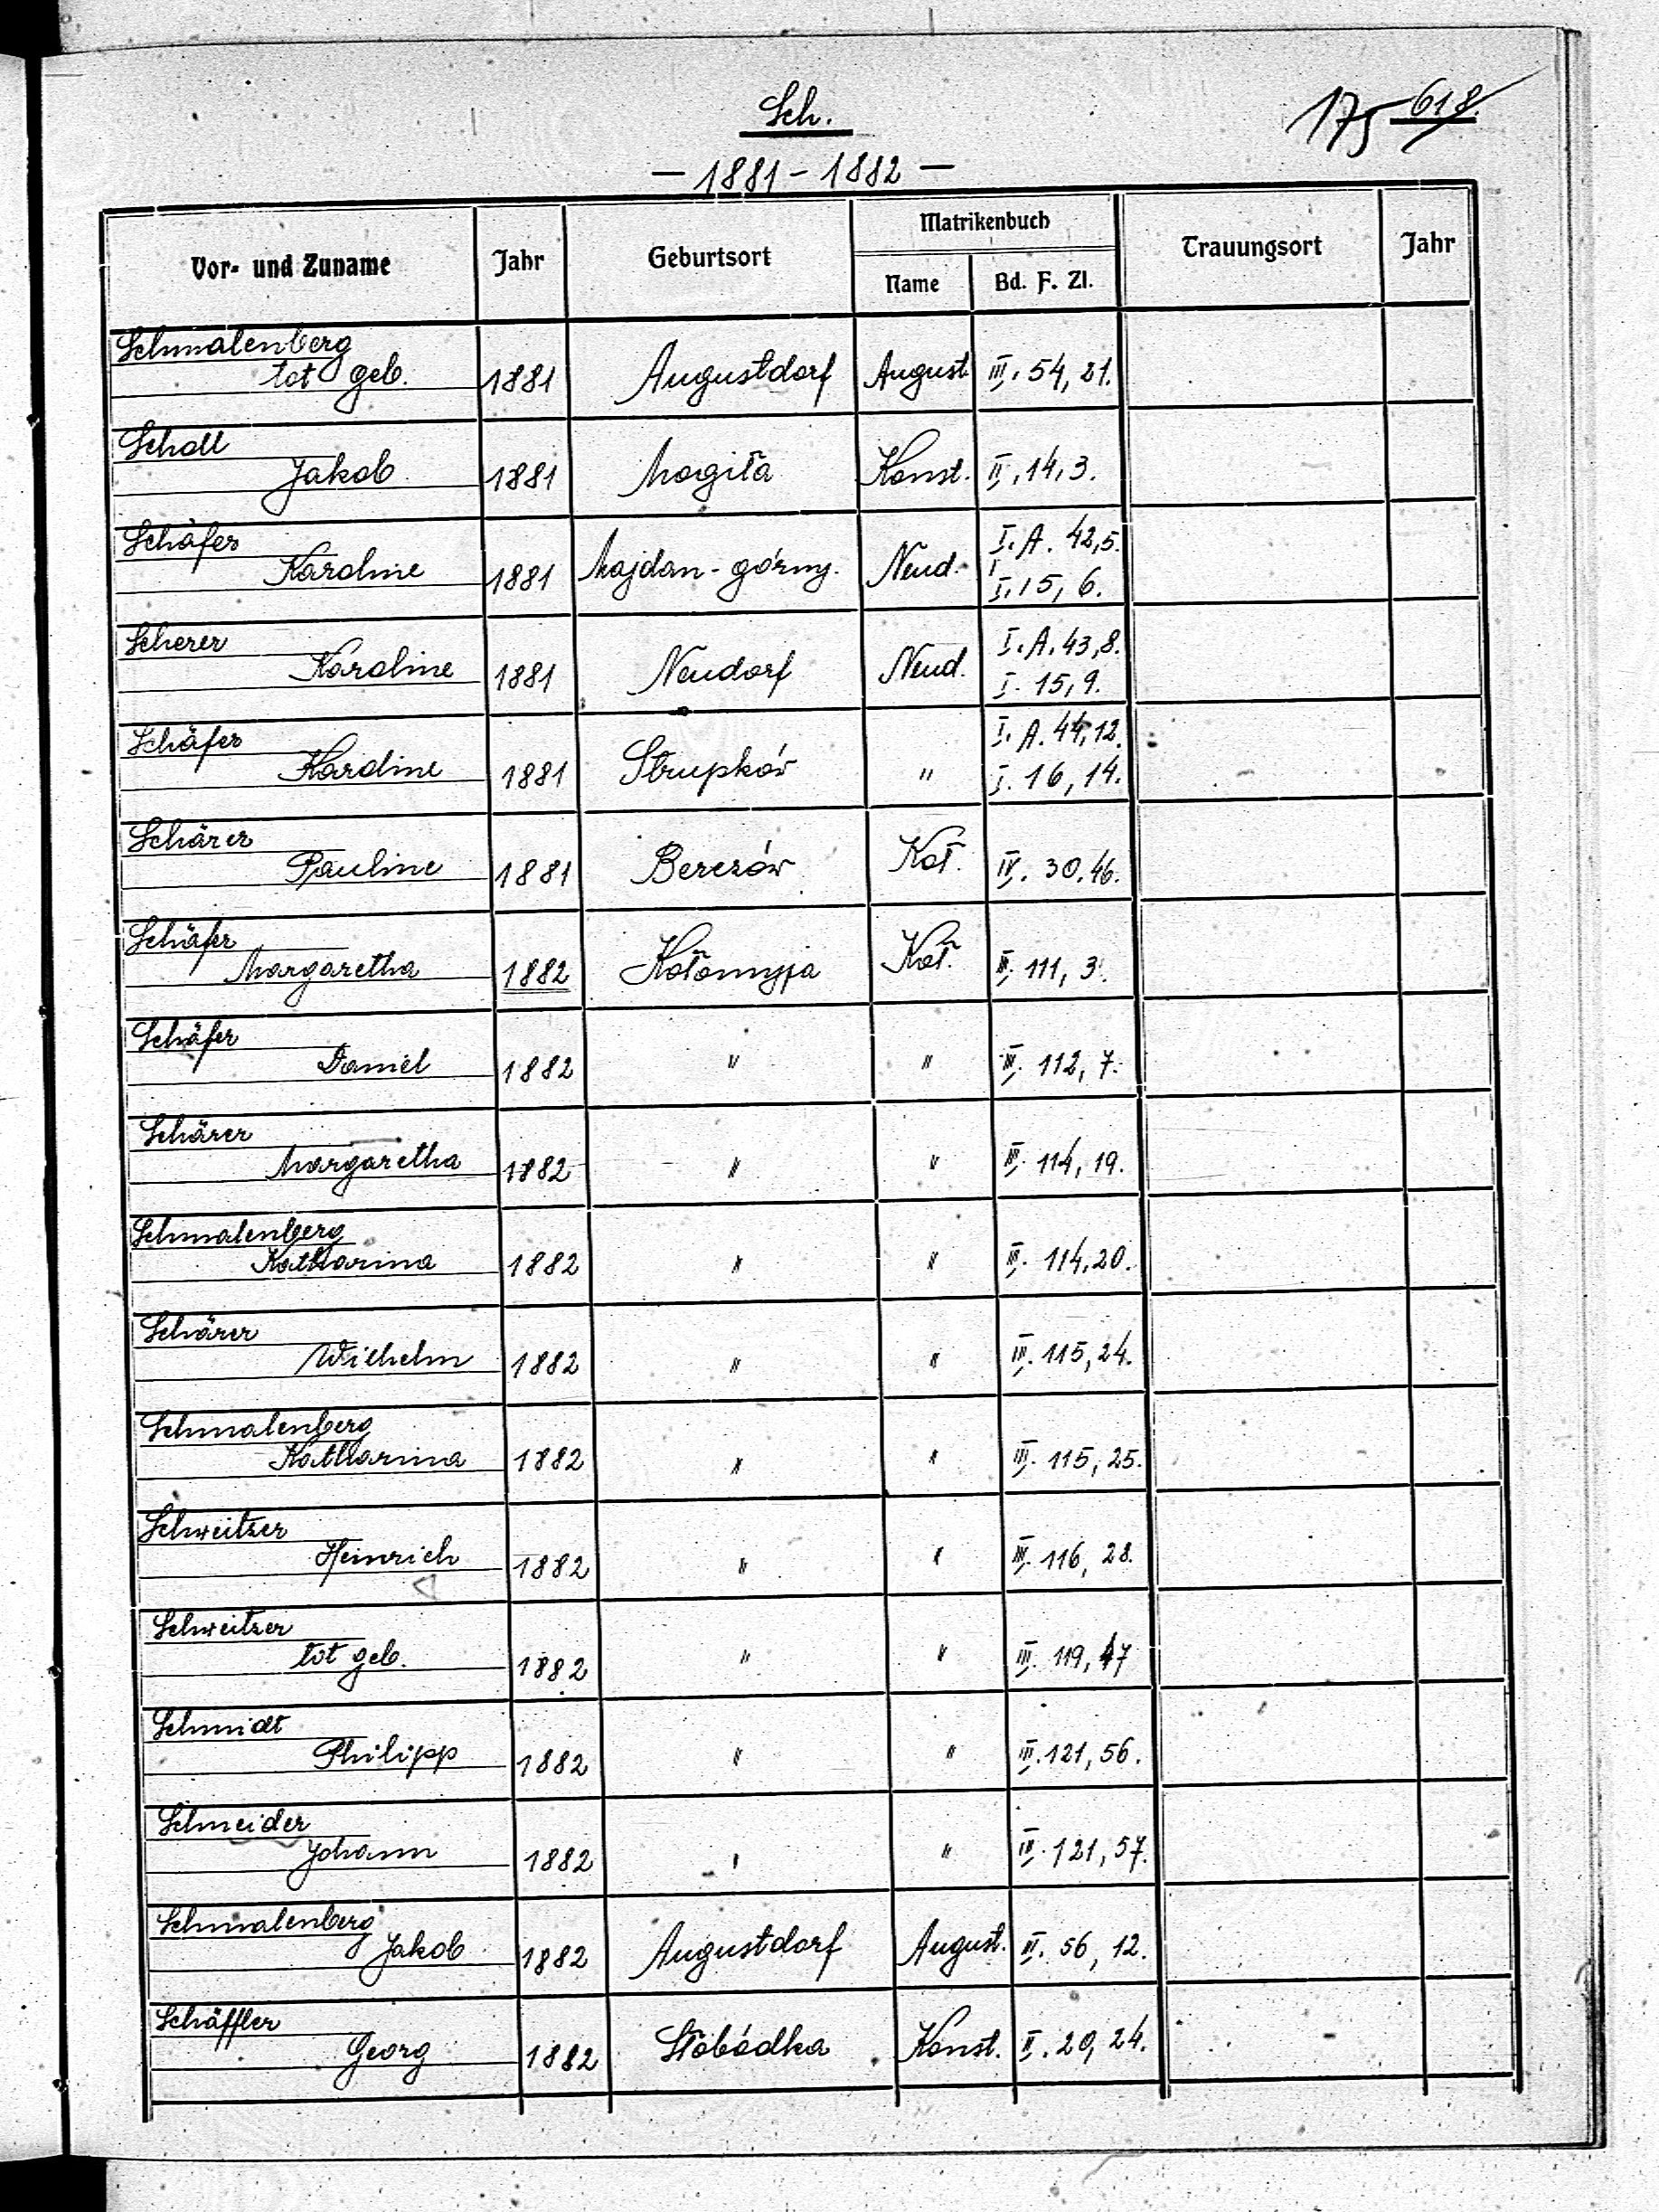 Sch.
175 618.
— 1881 - 1882 —
Vor- und Zuname Jahr Geburtsort Matrikenbuch Trauungsort Jahr
Name Bd. F. Zl.
Schmalenberg
tot geb. 1881 Augustdorf August. III. 54, 21.
Scholl
Jakob 1881 Mogiła Konst. II, 14, 3.
Schäfer I. A. 42,5.
Karoline 1881 Majdan-górny. Neud. I. 15, 6.
Scherer I. A. 43,8.
Karoline 1881 Neudorf Neud. I. 15, 9.
Schäfer I. A. 44,12.
Karoline 1881 Strupków " I. 16, 14.
Schärer
Pauline 1881 Berezów Koł. IV. 30. 46.
Schäfer
Margaretha 1882 Kołomyja Koł. III. 111, 3.
Schäfer
Daniel 1882 " " III. 112, 7.
Schärer
Margaretha 1882 " " III. 114, 19.
Schmalenberg
Katharina 1882 " " III. 114, 20.
Schärer
Wilhelm 1882 " " III. 115, 24.
Schmalenberg
Katharina 1882 " " III. 115, 25.
Schweitzer
Heinrich 1882 " " III. 116, 28.
Schweitzer
tot geb. 1882 " " III. 119, 47
Schmidt
Philipp 1882 " " III. 121, 56.
Schneider
Johann 1882 " " III. 121, 57.
Schmalenberg
Jakob 1882 Augustdorf August. III. 56, 12.
Schäffler
Georg 1882 Słobódka Konst. II. 20, 24.